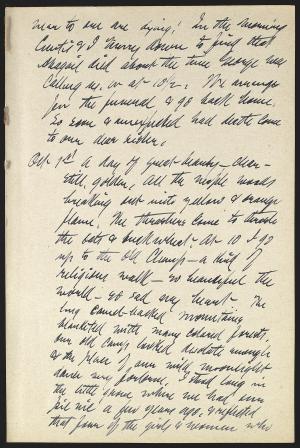 near to one are dying! In the morning
Curtis & I hurry down to find that
died about the time George was
calling us, or at 10½. We arrange
for the funeral & go back home.
So soon & unexpected had death come
to our dear sister.
Oct 1st A day of great beauty — clear
still, golden. All the maple woods
breaking out into yellow & orange
flame. The thrashers come to thrash
the oats & buckwheat. At 10 I go
up to the old Clump — a kind of
religious walk — so beautiful the
world — so sad my heart. The
long camel-backed mountain
blanketed with many colored forests,
our old camp looked desolate enough
as the place of our mild moonlight
I stood long in
the little grove where we had our
a few years ago, & reflected
that four of the girls & women who